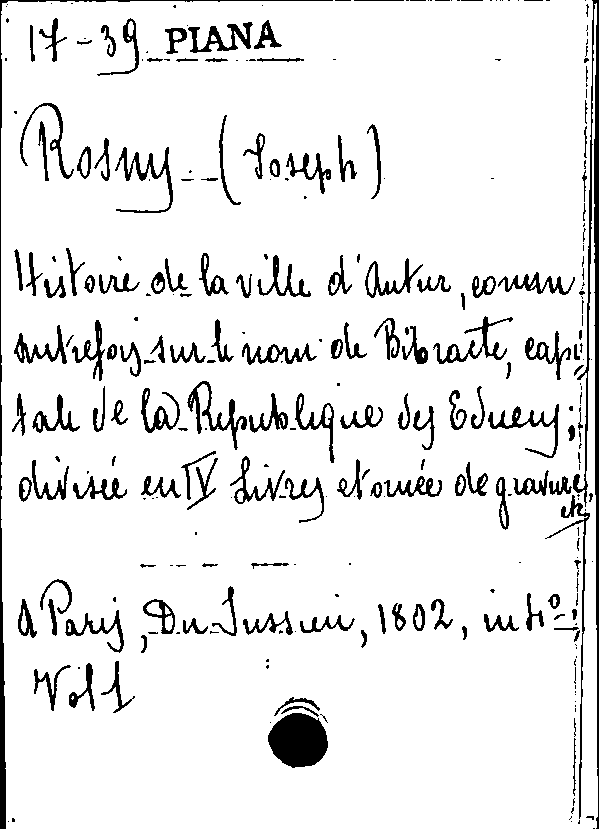 17-39 PIANA
Rosny (Joseph)
Histoire de la ville d'Autun, connu
autrefois sur le nom de Bibracte, capi
tale de la Republique des Eduens;
divisée en IV Livres et ornée de gravure
etc
A Paris, Du Jussieu, 1802, in 4º;
Vol 1